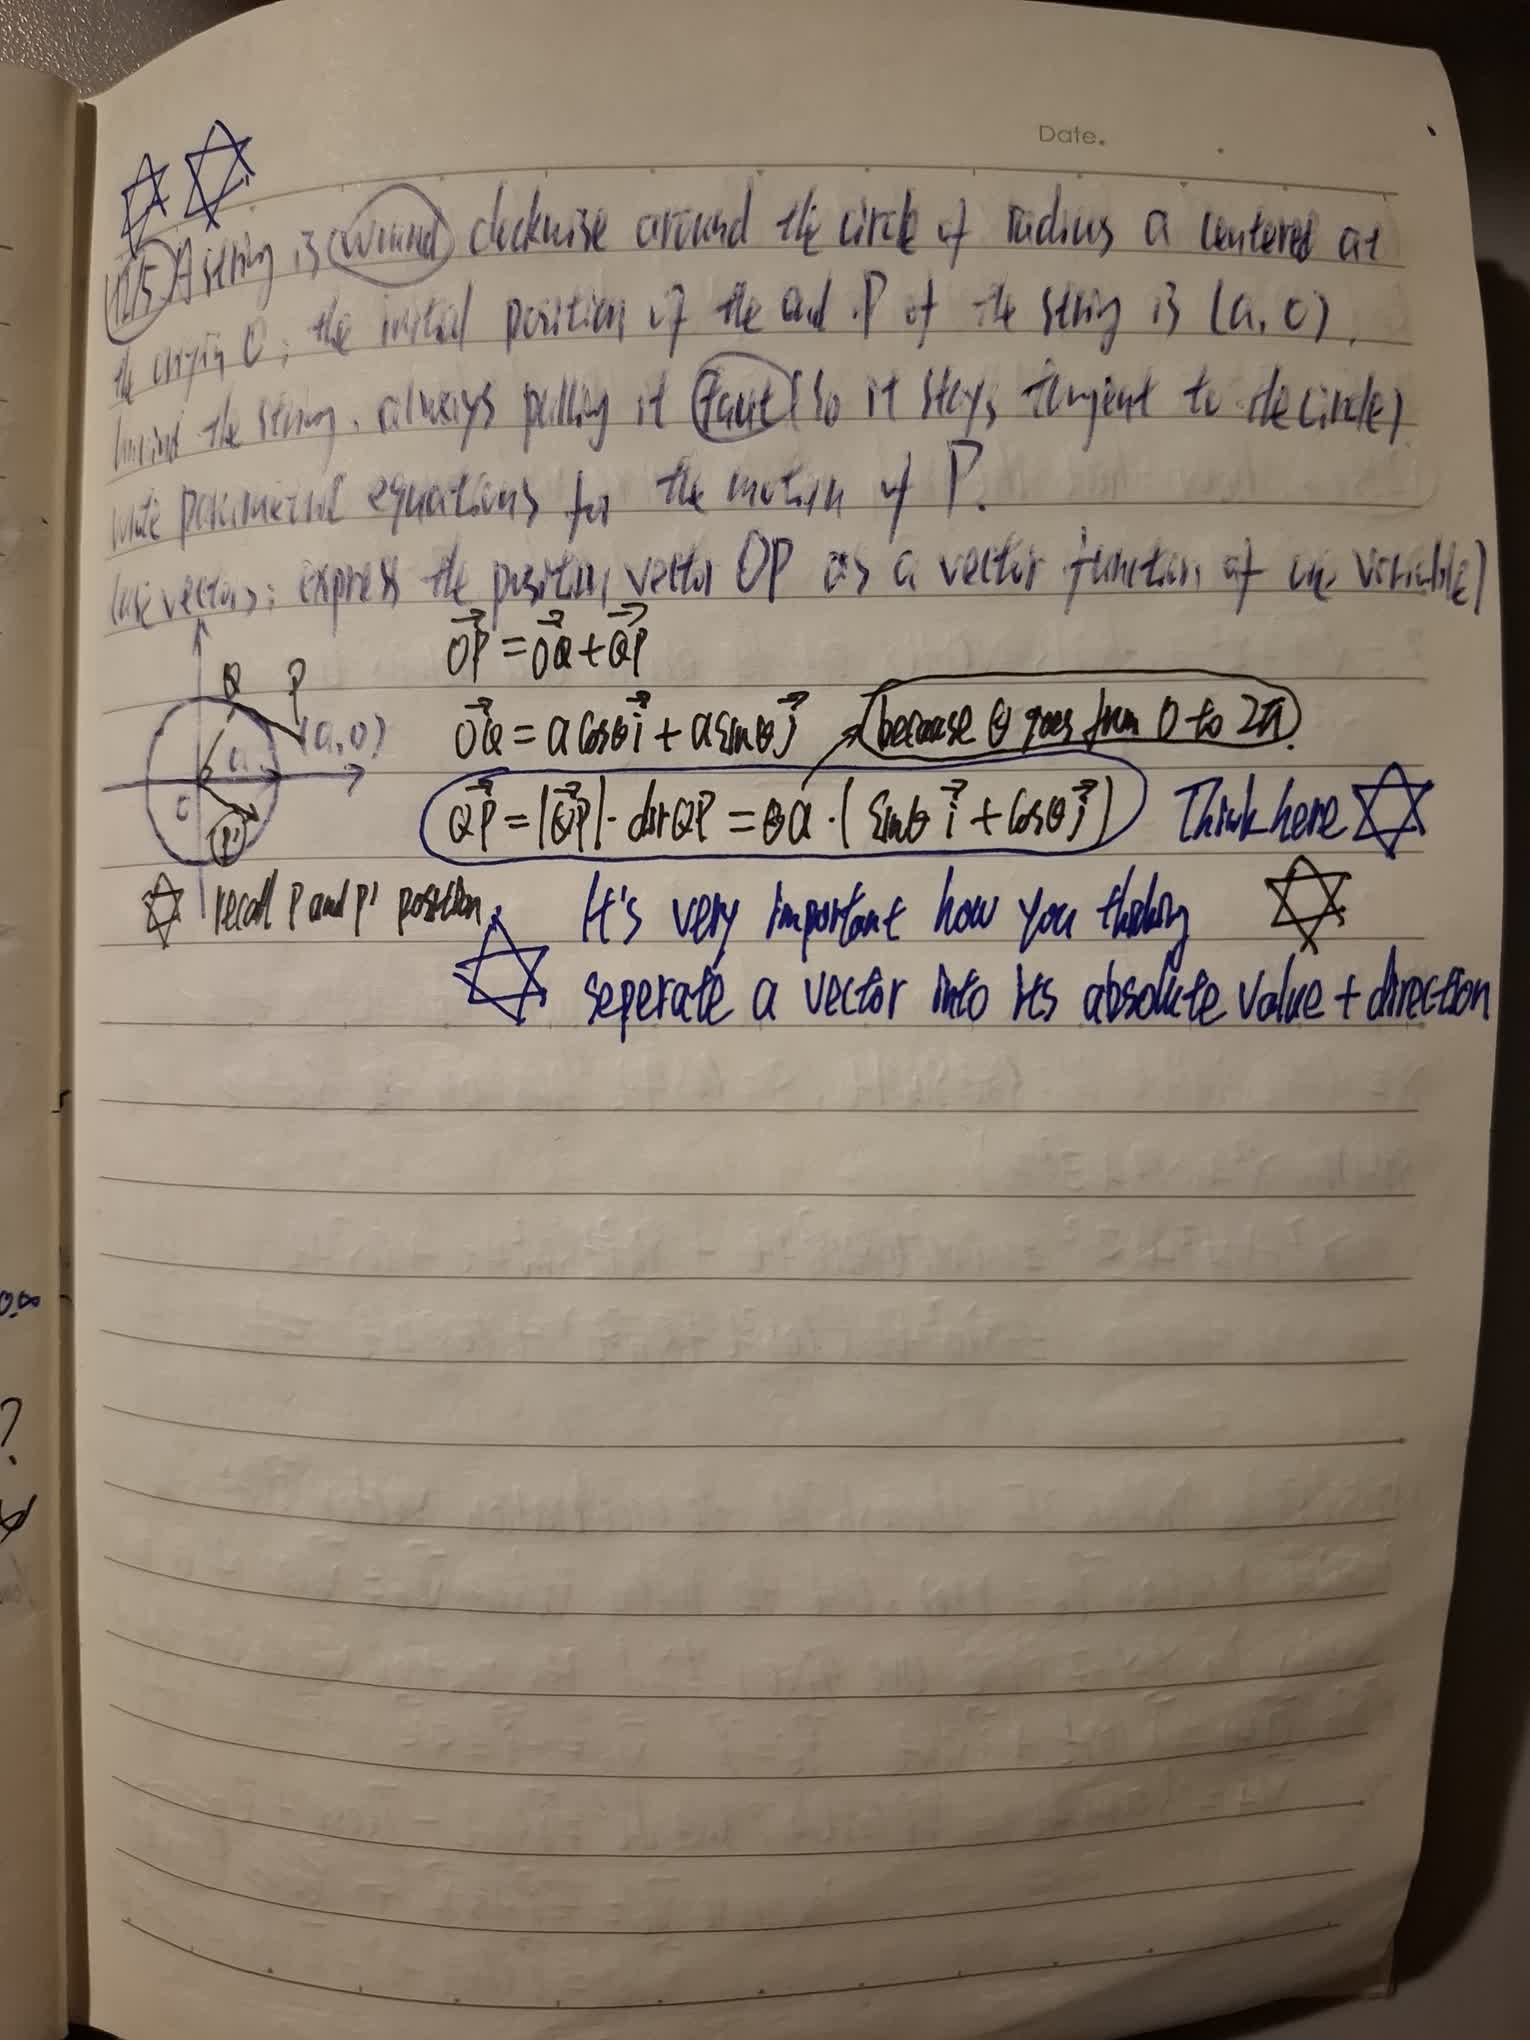 Date.
1I-5 A string is wound clockwise around the circle of radius a centered at
the origin O; the initial position of the end P of the string is (a, 0).
Unwind the string, always pulling it taut (so it stays tangent to the circle)
write parametric equations for the motion of P.
(use vectors: express the position vector OP as a vector function of one variable)
OP = OQ + QP
Q P
OQ = a cosθ i + a sinθ j because θ goes from 0 to 2π.
(a, 0)
a
O
P'
QP = |QP| · dir QP = θa · ( sinθ i + cosθ j ) Think here
recall P and P' position. It's very important how you thinking
seperate a vector into its absolute value + direction
0.∞
?